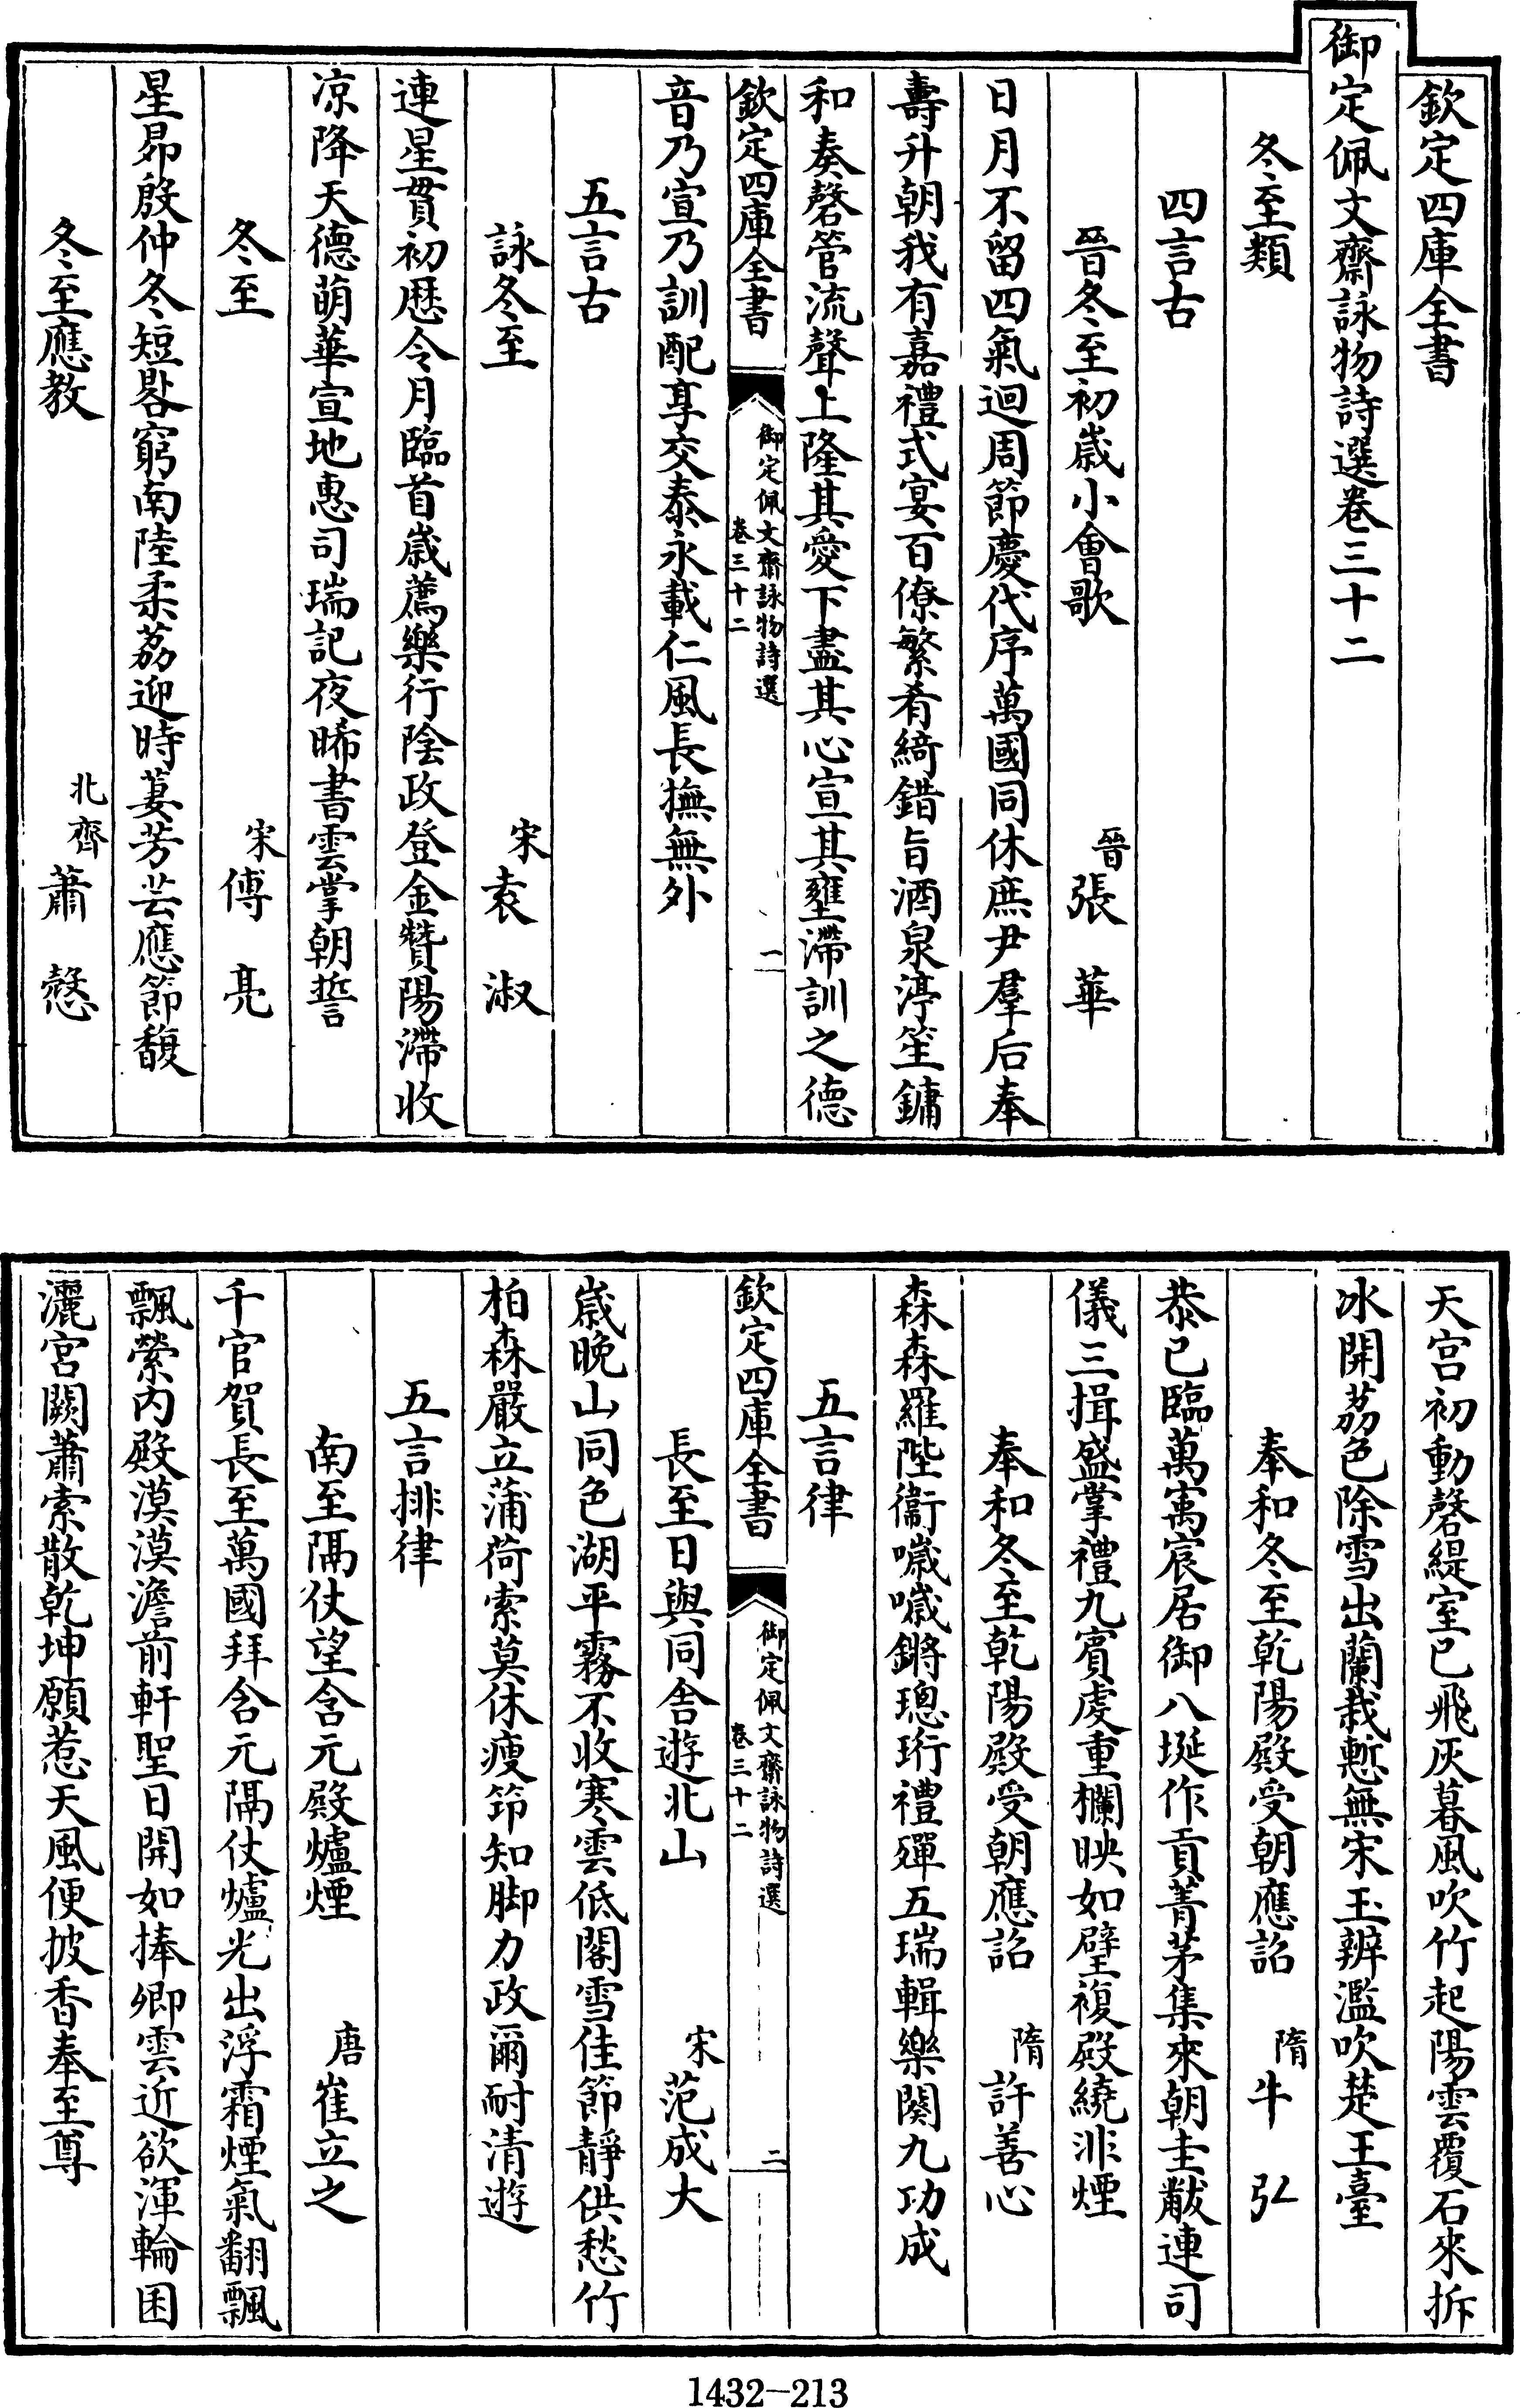 欽定四庫全書
御定佩文齋詠物詩選卷三十二
冬至類
四言古
晉冬至初歲小會歌 晉張 華
日月不留四氣迴周節慶代序萬國同休庶尹羣后奉
壽升朝我有嘉禮式宴百僚繁肴綺錯旨酒泉渟笙鏞
和奏磬管流聲上隆其愛下盡其心宣其壅滯訓之德
欽定四庫全書 御定佩文齋詠物詩選 卷三十二 一
音乃宣乃訓配享交泰永載仁風長撫無外
五言古
詠冬至 宋袁 淑
連星貫初厯令月臨首歲薦樂行陰政登金贊陽滯收
凉降天德萌華宣地惠司瑞記夜晞書雲掌朝誓
冬至 宋傅 亮
星昴殷仲冬短晷窮南陸柔荔迎時萋芳芸應節馥
冬至應教 北齊蕭 慤
天宮初動磬緹室已飛灰暮風吹竹起陽雲覆石來拆
冰開荔色除雪出蘭栽慙無宋玉辨濫吹楚王臺
奉和冬至乾陽殿受朝應詔 隋牛 弘
恭已臨萬㝢宸居御八埏作貢菁茅集來朝圭黻連司
儀三揖盛掌禮九賓虔重欄映如璧複殿繞非煙
奉和冬至乾陽殿受朝應詔 隋許善心
森森羅陛衞噦噦鏘璁珩禮殫五瑞輯樂闋九功成
五言律
欽定四庫全書 御定佩文齋詠物詩選 卷三十二 二
長至日與同舍遊北山 宋范成大
歲晚山同色湖平霧不收寒雲低閣雪佳節靜供愁竹
柏森嚴立蒲荷索莫休瘦筇知脚力政爾耐清遊
五言排律
南至隔仗望含元殿爐煙 唐崔立之
千官賀長至萬國拜含元隔仗爐光出浮霜煙氣翻飄
飄縈內殿漠漠澹前軒聖日開如捧卿雲近欲渾輪囷
灑宮闕蕭索散乾坤願惹天風便披香奉至尊
1432-213